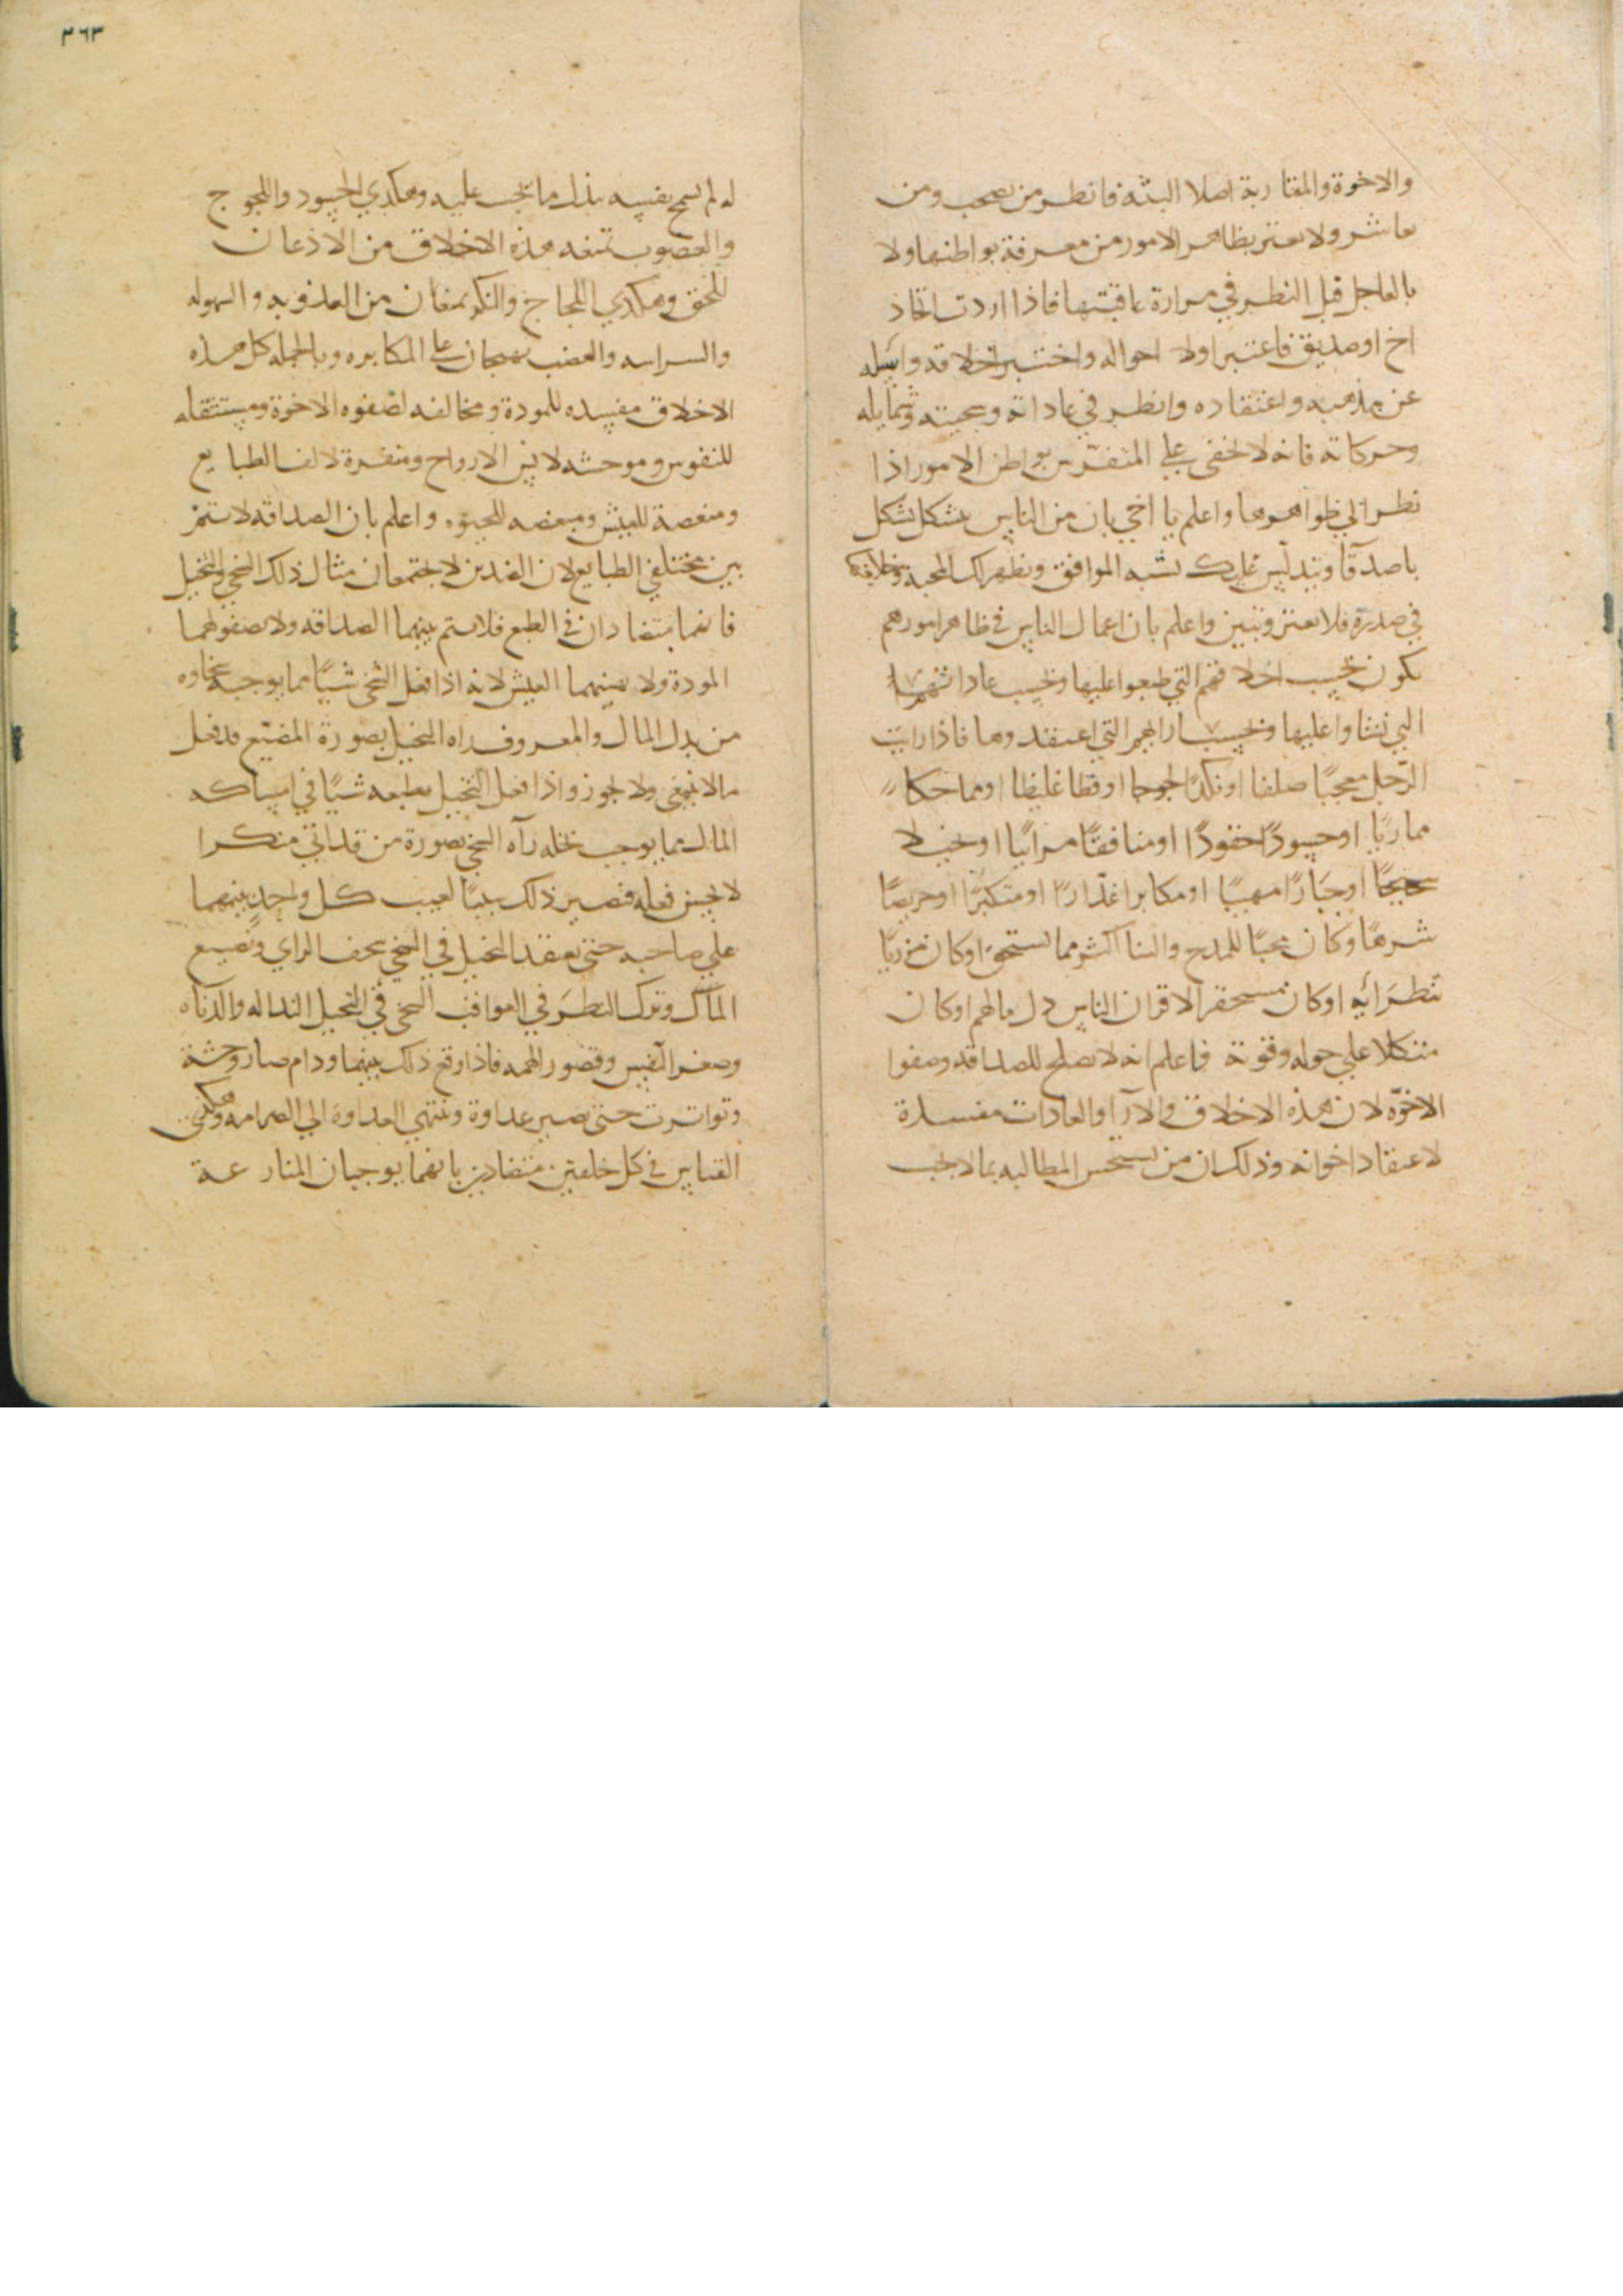 والاخوة والمقاربة اصلا البتة فانظر من تصحب ومن
تعاشر ولا تغتر بظاهر الامور من معرفة بواطنها ولا
بالعاجل قبل النظر في مرارة عاقبتها فاذا اردت اتخاذ
اخ او صديق فاعتبر اولا احواله واختبر اخلاقه واسله
عن مذهبه واعتقاده وانظر في عاداته وسجيته وشمايله
وحركاته فانه لا تخفى علي المتفرس بواطن الامور اذا
نظر الي ظواهرها واعلم يا اخي بان من الناس يتشكل بشكل
الصداقا ويتدلس عليك بشبه الموافق ويظهر لك المحبة وخلافها
في صدره فلا تغتر وتبين واعلم بان اعمال الناس في ظاهر امورهم
يكون بحسب اخلاقهم التي طبعوا عليها وبحسب عاداتهم
التي نشاوا عليها وبحسب ارائهم التي اعتقدوها فاذا رايت
الرجل معجبًا صلفا او نكدًا لجوجا او فظا غليظا او مماحكا
مماريًا او حسودًا حقودًا او منافقًا مرائيًا او بخيلا
شحيحًا او جبارًا مهيبًا او مكابرا غدّارًا او متكبرًا او حريصًا
شرهًا او كان محبًا للمدح والثنا اكثر مما يستحق او كان مزريًا
او كان مستحقر الاقران الناس مالهم او كان
متكلا علي حوله وقوته فاعلم انه لا يصلح للصداقه وصفوا
الاخوّة لان هذه الاخلاق والآرا والعادات مفسدة
لاعتقاد اخوانه وذلك ان من يستحس المطالبه بما لا يجب
٣٦٣
له لم يسمح بنفسه بذل ما يجب عليه وهكذي الحسود واللجوج
والغضوب تمنعه هذه الاخلاق من الاذعان
للحق وهكذي اللجاج والنكد يمنعان من العذوبه والسهوله
والشراسه والغضب يهيجان علي المكابره وبالجمله كل هذه
الاخلاق مفسده للمودة ومخالفه لصفوه الاخوة ومستثقله
للنفوس وموحشه لانس الارواح ومنفرة لالف الطبايع
ومنغصة للعيش ومبغضه للحيوه واعلم بان الصداقه لا تتم
بين مختلفي الطبايع لان الضدين لا يجتمعان مثال ذلك السخي والبخيل
فانهما متضادان في الطبع فلا يتم بينهما الصداقه ولا يصفو لهما
المودة ولا بينهما العيش لانه اذا فعل السخي شيئًا مما يوجبه سخاوه
من بذل المال والمعروف راه البخيل بصورة المضيّع قد فعل
مالا ينبغي ولا يجوز واذا فعل البخيل بطبعه شيئًا في امساكه
المال مما يوجب بخله رآه السخي بصورة من قد اتي منكرا
لا يحسن فعله فيصير ذلك سببًا لعيب كل واحد بينهما
علي صاحبه حتى يعتقد البخيل في السخي سخف الراي وتضييع
المال وترك النظر في العواقب السخي في البخيل النذاله والدناه
وصغر النفس وقصور الهمه فاذا وقع ذلك بينهما ودام صار وحشة
وتواترت حتى تصير عداوة وتنتهي العداوة الي الصرامه وهكذي
القياس في كل خلقين متضادين بانهما يوجبان المنازعة